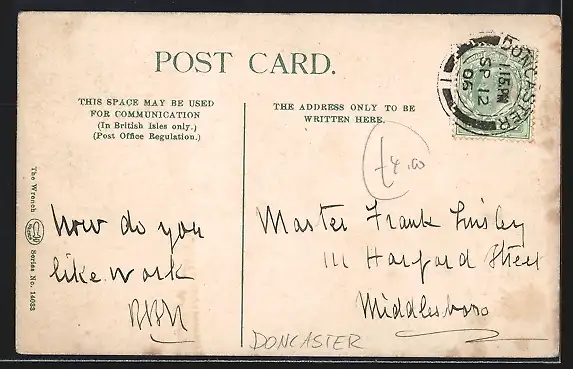 POST CARD.
THIS SPACE MAY BE USED
FOR COMMUNICATION
(In British Isles only.)
(Post Office Regulation.)
THE ADDRESS ONLY TO BE
WRITTEN HERE.
DONCASTER
SP 12
06
£4.00
The Wrench
Series No. 14033
how do you
like work
Master Frank Linsley
111 Harford Street
Middlesboro
DONCASTER